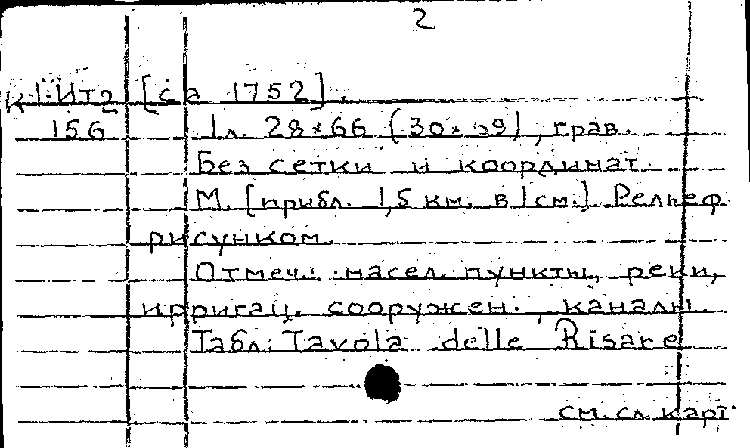 2
К 1-Ит2 [са 1752].
156 1 л. 28×66 (30× ), грав.
Без сетки и координат.
М. [прибл. 1,5 км. в 1 см.] Рельеф
рисунком.
Отмеч.: насел. пункты, реки,
ирригац. сооружен., каналы.
Табл.: Tavola delle Risare
см. сл. карт.